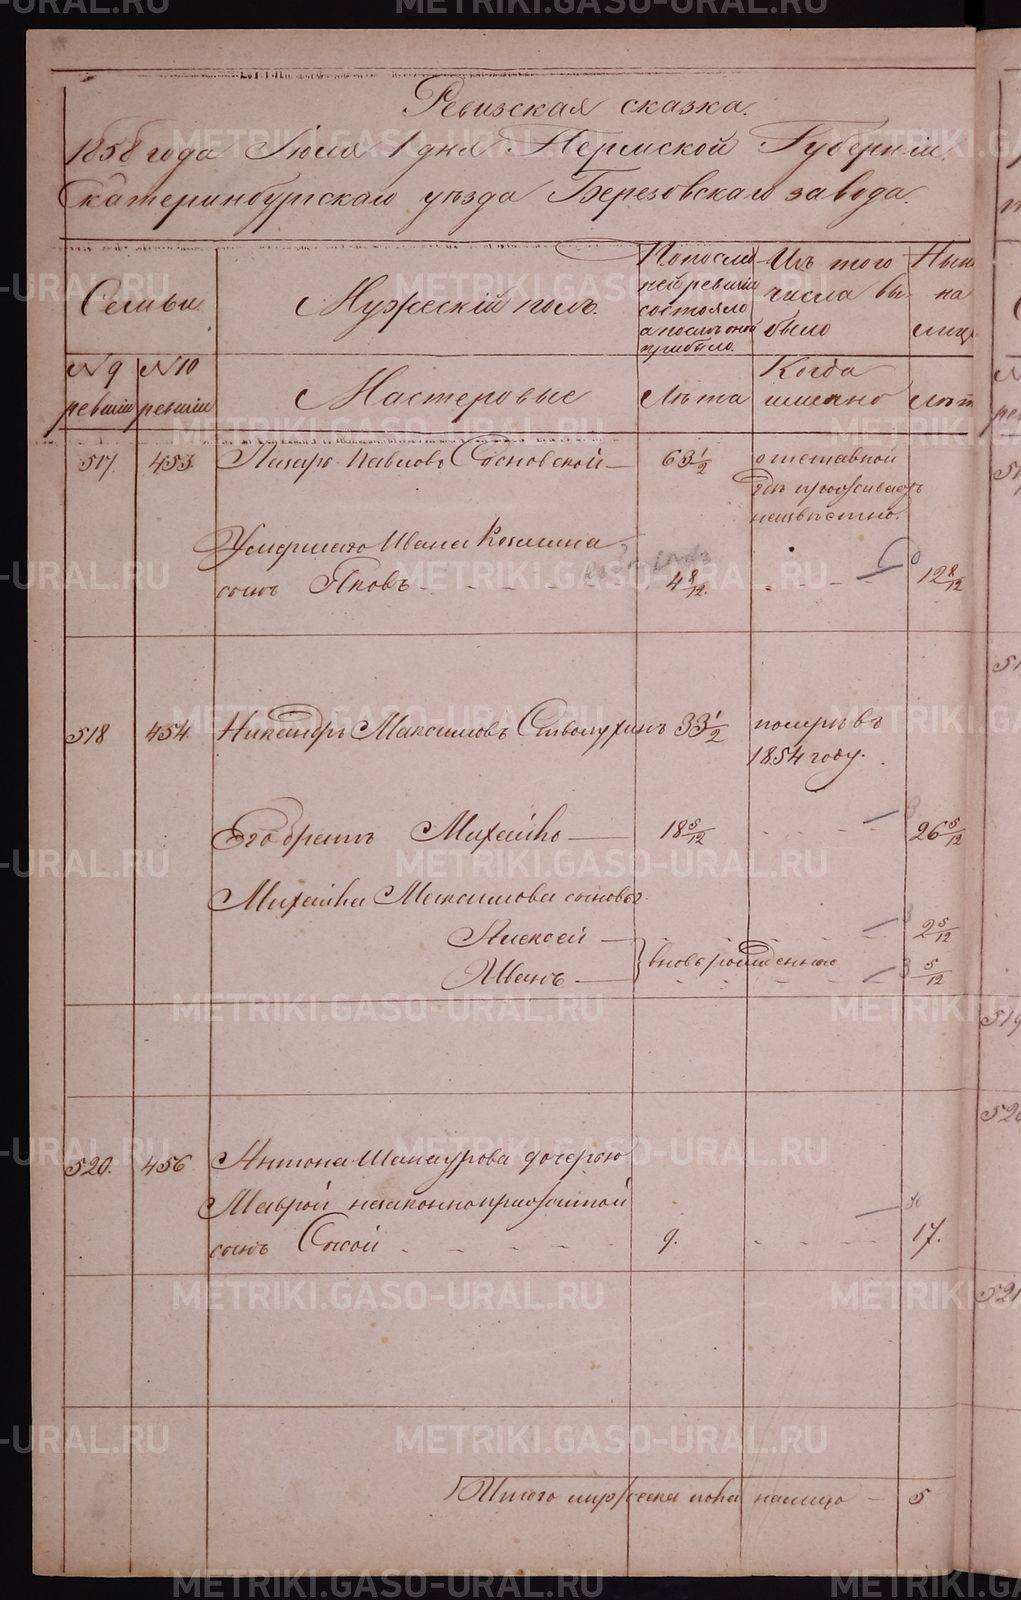 Ревизская сказка.
1858 года Июля 1 дня Пермской Губерніи,
Екатеринбургскаго уѣзда Березовскаго завода.
Семьи
Мужескій полъ.
По послѣд-
ней ревизіи
состояло
а послѣ оной
прибыло.
Изъ того
числа вы-
было
Нын
на
лиц
№ 9
ревизіи
№ 10
ревизіи
Мастеровые
Лѣта
Когда
именно
Лѣт
517. 453 Лазарь Павловъ Сосновской — 63 1/2 отставной
гдѣ проживаетъ
неизвѣстно.
Умершаго Ивана Козмина
сынъ Яковъ - - - - 4 8/12. - - - 12 8/12
518 454 Никандръ Максимовъ Стволухинъ 33 1/2 померъ въ
1854 году.
Его братъ Михайло — 18 5/12 - - - - 26 5/12
Михайла Максимова сыновья
Алексей — 2 5/12
Иванъ — вновь рожденные 5/12
520. 456 Антона Шамаурова дочерью
Маврой незаконноприжитой
сынъ Сысой - - - - - 9. - - - - 17.
Итого мужеска пола налицо — 5
METRIKI.GASO-URAL.RU